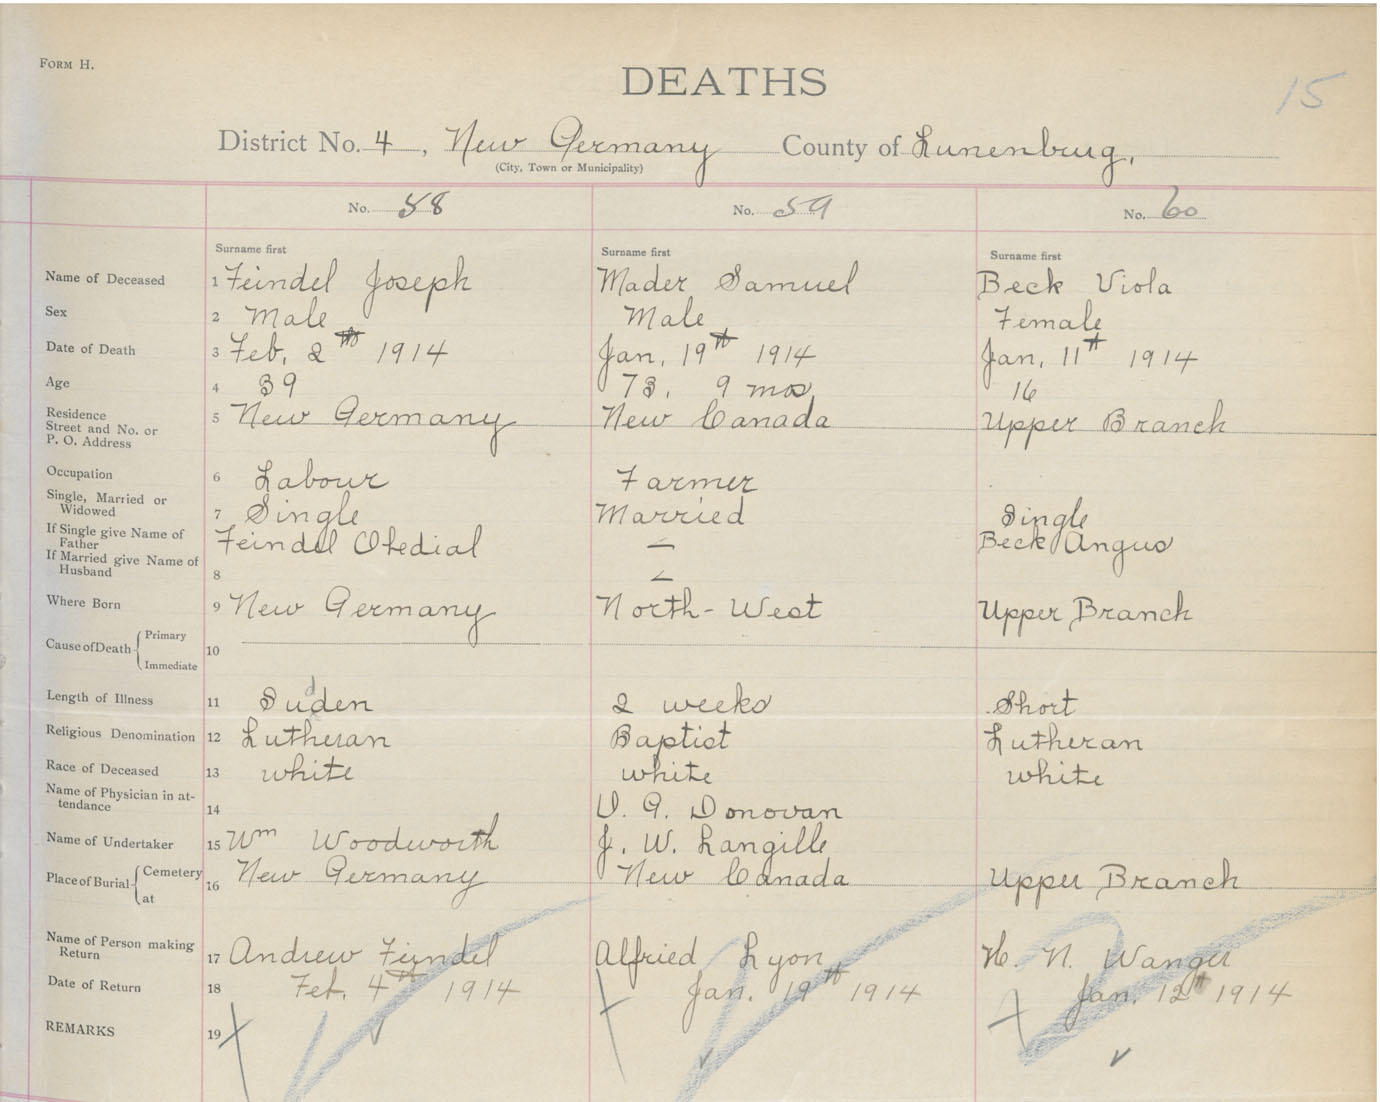 FORM H.
DEATHS
15
District No. 4, New Germany County of Lunenbrug,
(City, Town or Municipality)
No. 58 No. 59 No. 60
Surname first Surname first Surname first
Name of Deceased 1 Feindel Joseph Mader Samuel Beck Viola
Sex 2 Male Male Female
Date of Death 3 Feb, 2th 1914 Jan, 19th 1914 Jan, 11th 1914
Age 4 39 73, 9 mos 16
Residence
Street and No. or
P. O. Address 5 New Germany New Canada Upper Branch
Occupation 6 Labour Farmer
Single, Married or
Widowed 7 Single Married Single
If Single give Name of
Father Feindel Obedial — Beck Angus
If Married give Name of
Husband 8
Where Born 9 New Germany North-West Upper Branch
Cause of Death { Primary
Immediate 10
Length of Illness 11 Sudden 2 weeks Short
Religious Denomination 12 Lutheran Baptist Lutheran
Race of Deceased 13 white white white
Name of Physician in at-
tendance 14 Donovan
Name of Undertaker 15 Wm Woodworth J. W. Langille
Place of Burial { Cemetery
at 16 New Germany New Canada Upper Branch
Name of Person making
Return 17 Andrew Feindel Alfried Lyon H. N.
Date of Return 18 Feb, 4th 1914 Jan. 19th 1914 Jan. 12th 1914
REMARKS 19